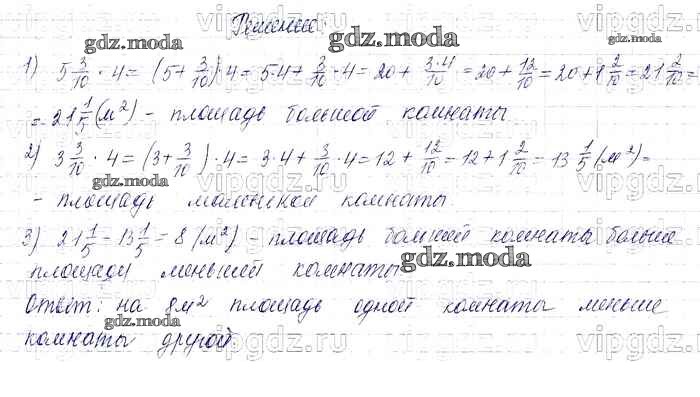 Решение:
1) 5 3/10 · 4 = (5 + 3/10) · 4 = 5·4 + 3/10 · 4 = 20 + 3·4/10 = 20 + 12/10 = 20 + 1 2/10 = 21 2/10 =
= 21 1/5 (м²) - площадь большой комнаты.
2) 3 3/10 · 4 = (3 + 3/10) · 4 = 3·4 + 3/10 · 4 = 12 + 12/10 = 12 + 1 2/10 = 13 1/5 (м²) -
- площадь маленькой комнаты.
3) 21 1/5 - 13 1/5 = 8 (м²) - площадь большей комнаты больше
площади меньшей комнаты
Ответ: на 8 м² площадь одной комнаты меньше
комнаты другой.
gdz.moda
gdz.moda
gdz.moda
gdz.moda
gdz.moda
gdz.moda
vipgdz.ru